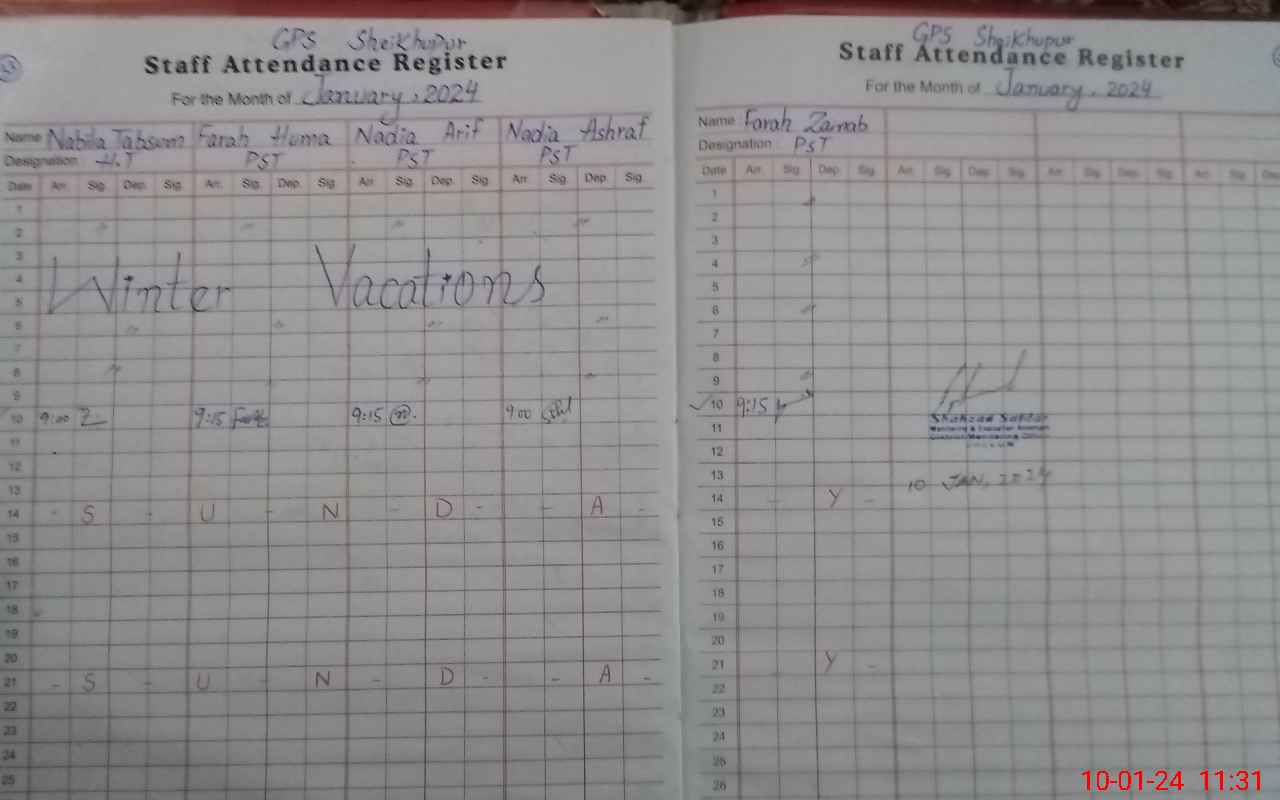 GPS Sheikhupur
Staff Attendance Register
For the Month of January, 2024
Name Nabila Tabsum Farah Huma Nadia Arif Nadia Ashraf
Designation H.T PST PST PST
Date Arr. Sig. Dep. Sig. Arr. Sig. Dep. Sig. Arr. Sig. Dep. Sig. Arr. Sig. Dep. Sig.
1
2
3
4
5
Winter Vacations
6
7
8
9
10 9:00 9:15 9:15 9:00
11
12
13
14 - S - U - N - D - - A -
15
16
17
18
19
20
21 - S - U - N - D - - A -
22
23
24
25
GPS Sheikhupur
Staff Attendance Register
For the Month of January, 2024
Name Farah Zainab
Designation PST
Date Arr. Sig. Dep. Sig. Arr. Sig. Dep. Sig. Arr. Sig. Dep. Sig. Arr. Sig. Dep
1
2
3
4
5
6
7
8
9
10 9:15
11
12
13
10 JAN, 2024
14 - Y -
15
16
17
18
19
20
21 Y -
22
23
24
25
26
10-01-24 11:31